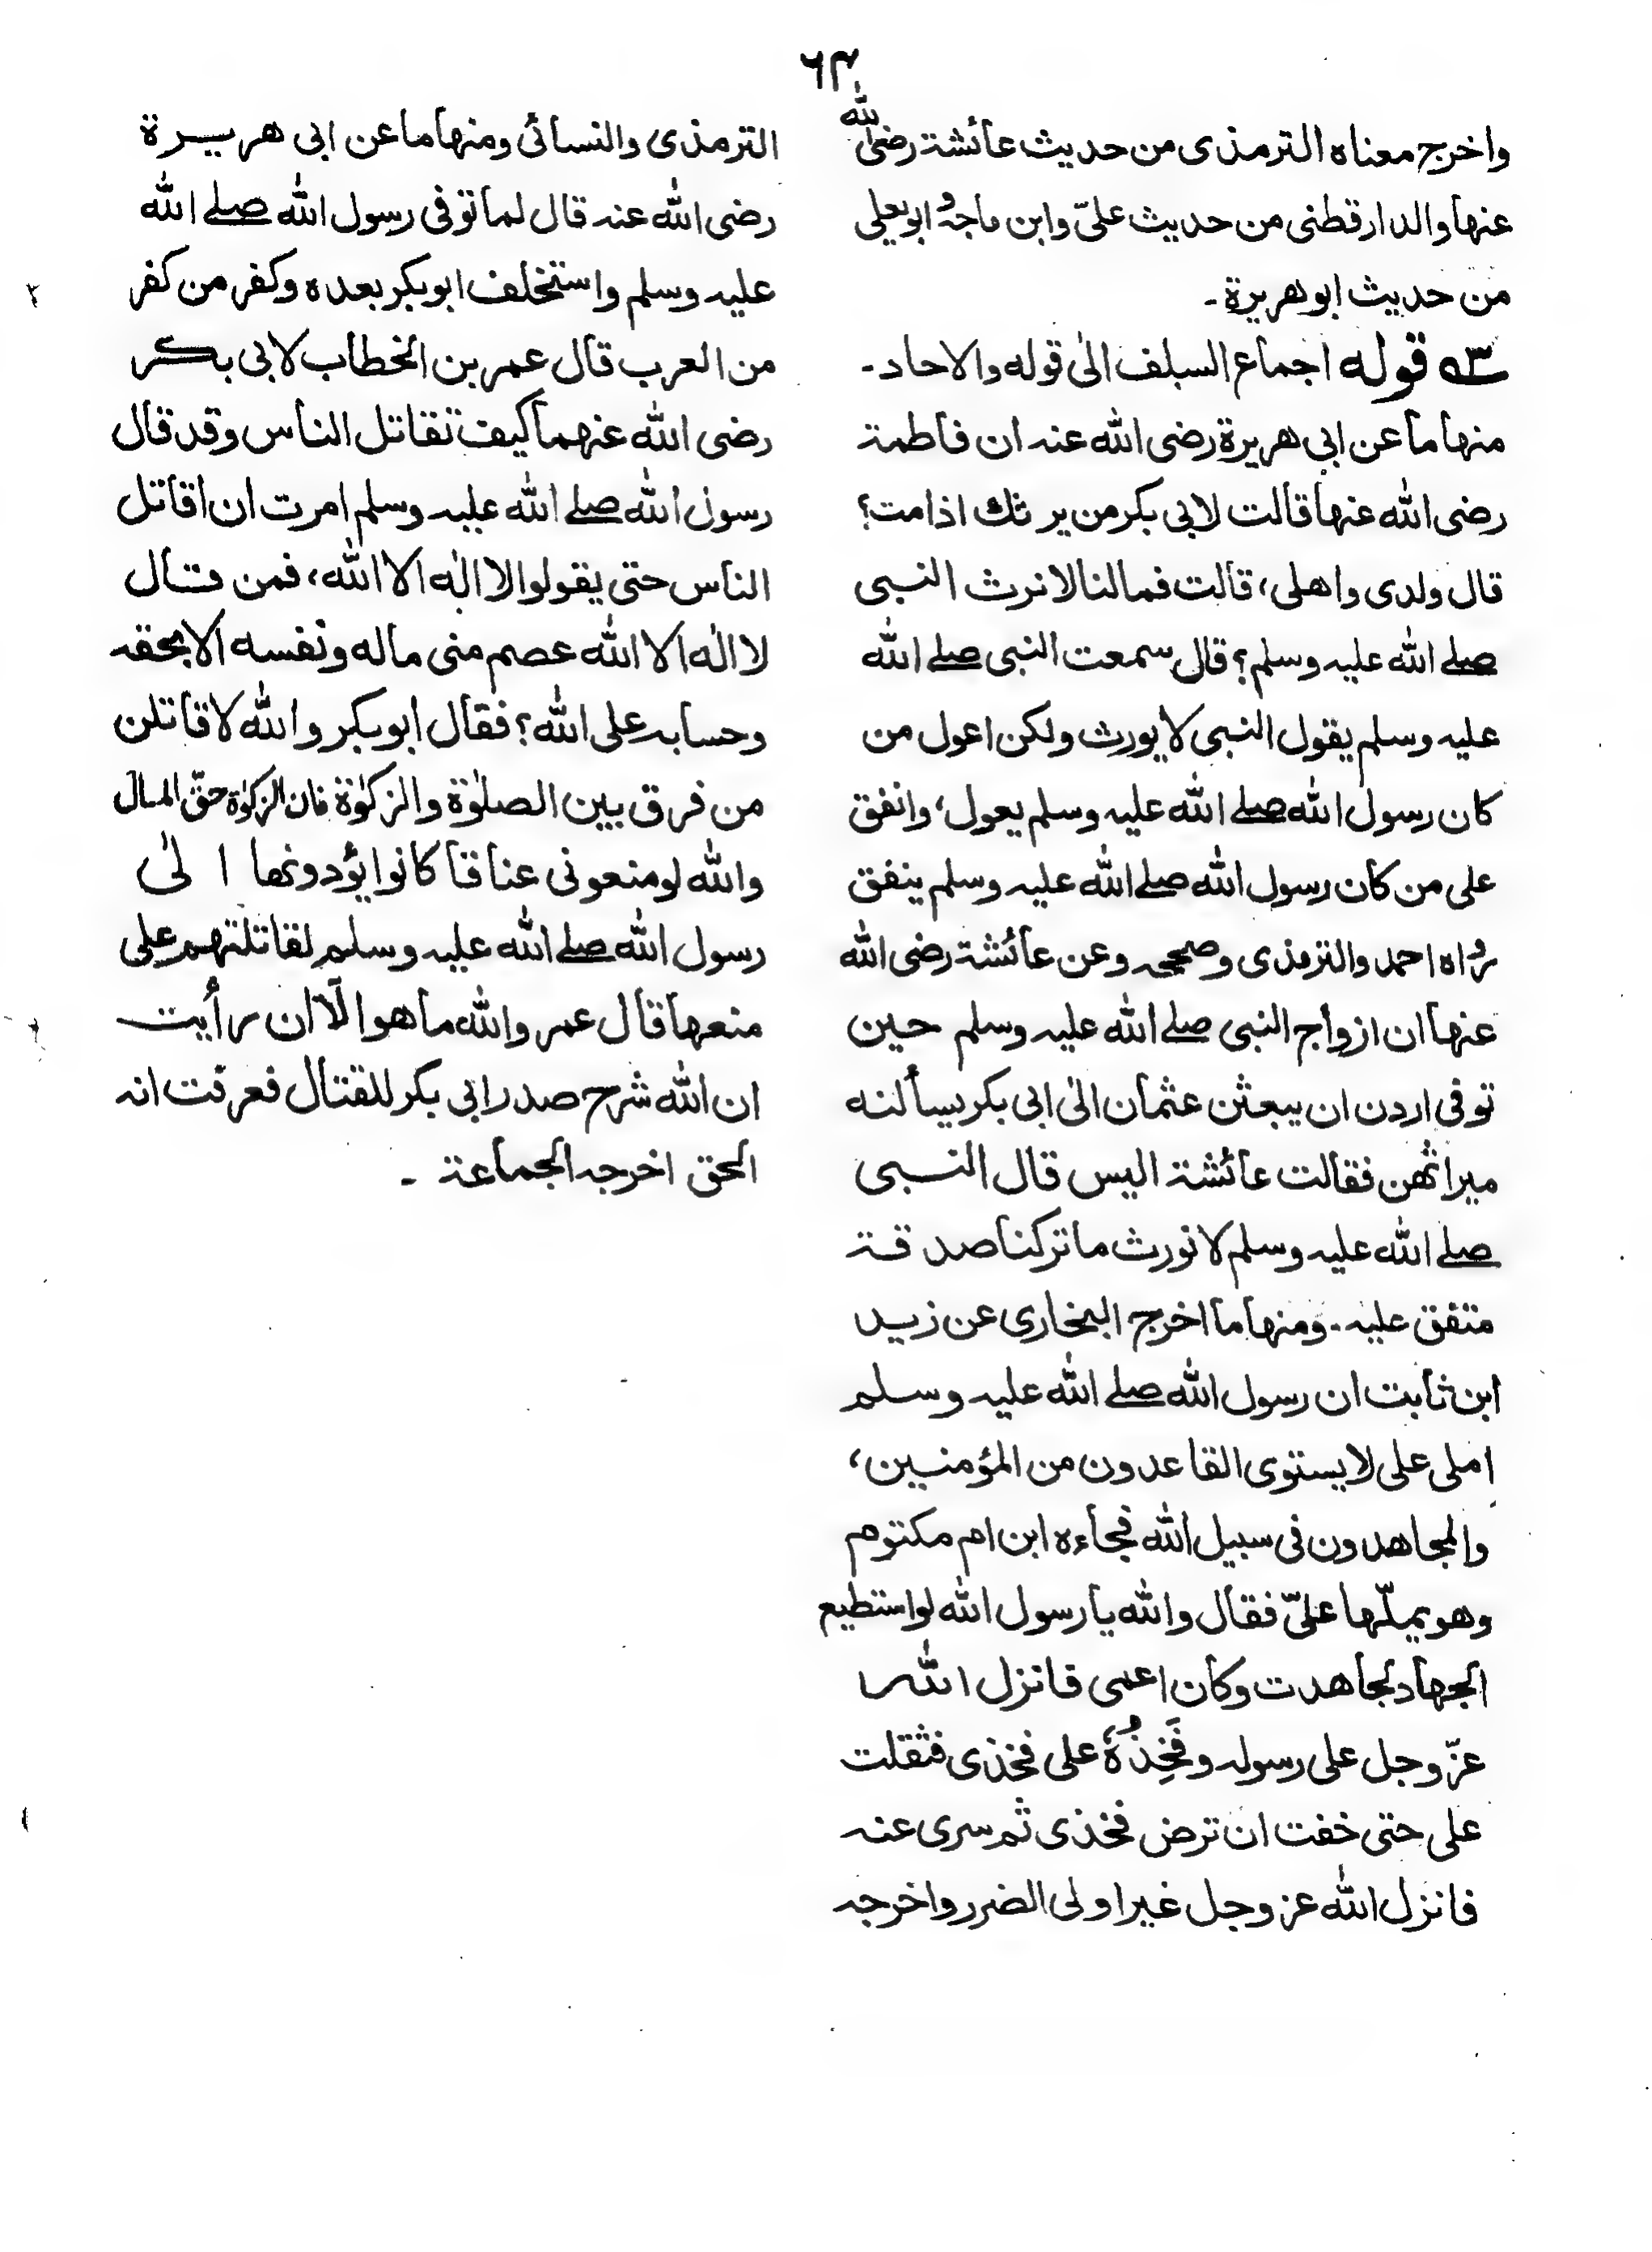 ٦٣
واخرج معناه الترمذى من حديث عائشة رضى الله
عنها والدارقطنى من حديث علىّ وابن ماجه وابو يعلى
من حديث ابو هريرة۔
٥٣ قوله اجماع السلف الىٰ قوله والاحاد۔
منها ما عن ابى هريرة رضى الله عنه ان فاطمة
رضى الله عنها قالت لابى بكر من يرثك اذا مت؟
قال ولدى واهلى، قالت فمالنا لا نرث النبى
صلے الله عليه وسلم؟ قال سمعت النبى صلے الله
عليه وسلم يقول النبى لا يورث ولكن اعول من
كان رسول الله صلے الله عليه وسلم يعول، وانفق
على من كان رسول الله صلے الله عليه وسلم ينفق
رواه احمد والترمذى وصححه وعن عائشة رضى الله
عنها ان ازواج النبى صلے الله عليه وسلم حين
توفى اردن ان يبعثن عثمان الىٰ ابى بكر يسألنه
ميراثهن فقالت عائشة اليس قال النبى
صلے الله عليه وسلم لا نورث ما تركنا صدقة
متفق عليه۔ ومنها ما اخرج البخارى عن زيد
ابن ثابت ان رسول الله صلے الله عليه وسلم
املى على لا يستوى القاعدون من المؤمنين،
والمجاهدون فى سبيل الله فجاءه ابن ام مكتوم
وهو يملّها علىّ فقال والله يا رسول الله لو استطيع
الجهاد لجاهدت وكان اعمى فانزل الله
عزّ وجل على رسوله وفَخِذُهٗ على فخذى فثقلت
على حتى خفت ان ترض فخذى ثم سرى عنه
فانزل الله عز وجل غير اولى الضرر واخرجه
الترمذى والنسائى ومنها ما عن ابى هريرة
رضى الله عنه قال لما توفى رسول الله صلے الله
عليه وسلم واستخلف ابو بكر بعده وكفر من كفر
من العرب قال عمر بن الخطاب لابى بكر
رضى الله عنهما كيف تقاتل الناس وقد قال
رسول الله صلے الله عليه وسلم امرت ان اقاتل
الناس حتى يقولوا لا الٰه الا الله، فمن قال
لا الٰه الا الله عصم منى ماله ونفسه الا بحقه
وحسابه على الله؟ فقال ابو بكر والله لاقاتلن
من فرق بين الصلوٰة والزكوٰة فان الزكوٰة حقّ المال
والله لو منعونى عناقا كانوا يؤدونها الىٰ
رسول الله صلے الله عليه وسلم لقاتلتهم على
منعها قال عمر والله ما هو الّا ان رأيت
ان الله شرح صدر ابى بكر للقتال فعرفت انه
الحق اخرجه الجماعة ۔